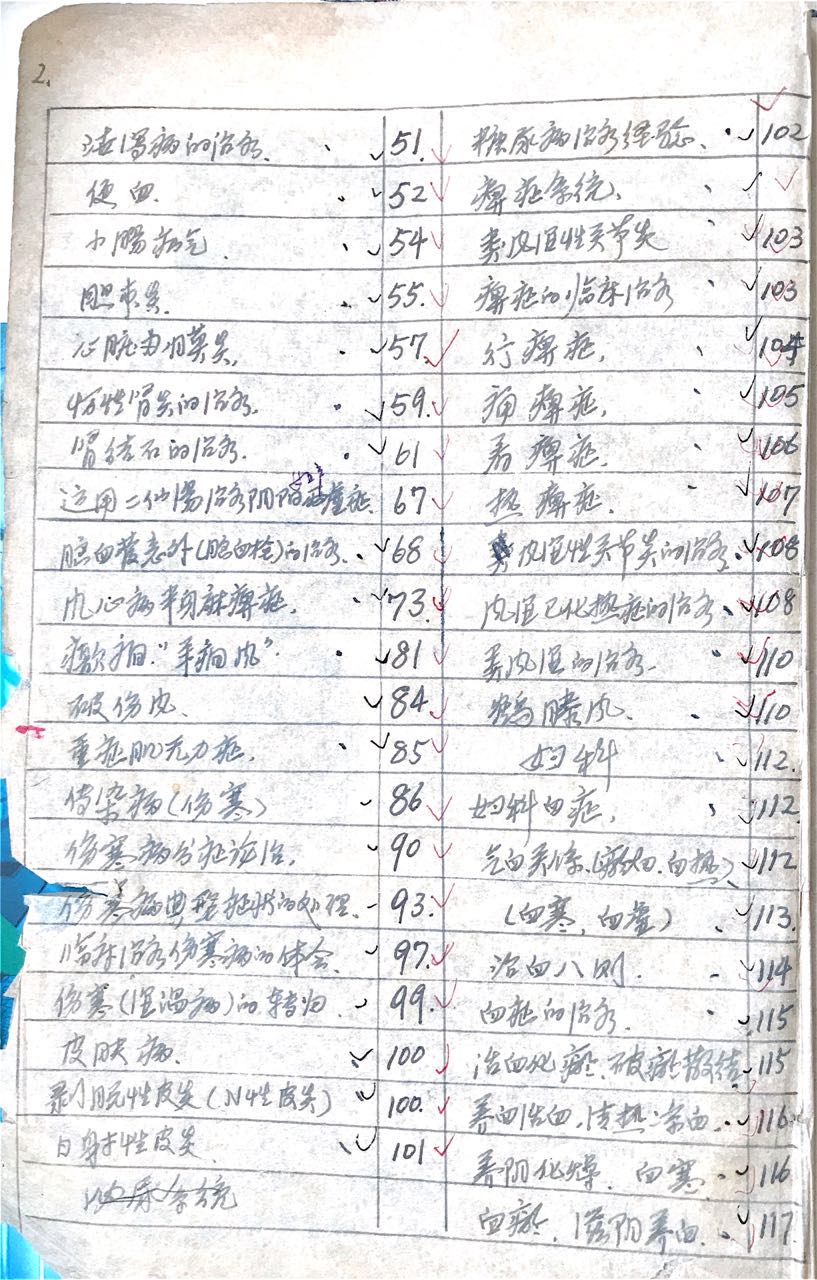 2.
溃疡病的治疗. 51.
便血. 52
小肠疝气. 54
胆囊炎. 55.
心脏内膜炎. 57.
慢性肾炎的治疗. 59.
肾结石的治疗. 61
运用二仙汤治疗阴阳虚症. 67
脑血管意外(脑血栓)的治疗. 68
风心病 半身麻痹症. 73.
癫痫."羊痫风". 81
破伤风. 84
重症肌无力症. 85
传染病(伤寒) 86
伤寒病分症论治. 90
伤寒病典型症状的处理. 93.
临床治疗伤寒病的体会. 97.
伤寒(湿温病)的转归. 99.
皮肤病. 100
剥脱性皮炎(N性皮炎) 100.
日射性皮炎 101
泌尿系统
糖尿病治疗经验. 102
痹症系统.
类风湿性关节炎 103
痹症的临床治疗 103
行痹症. 104
痛痹症. 105
着痹症. 106
热痹症. 107
类风湿性关节炎的治疗. 108
风湿已化热症的治疗 108
类风湿的治疗. 110
鹤膝风. 110
妇科 112.
妇科血症. 112
气血关系. (血热) 112
(血寒,血虚) 113.
治血八则. 114
血症的治疗. 115
活血化瘀.破瘀散结 115
养血活血.清热凉血. 116
养阴化燥. 血寒. 116
血瘀. 滋阴养血. 117.